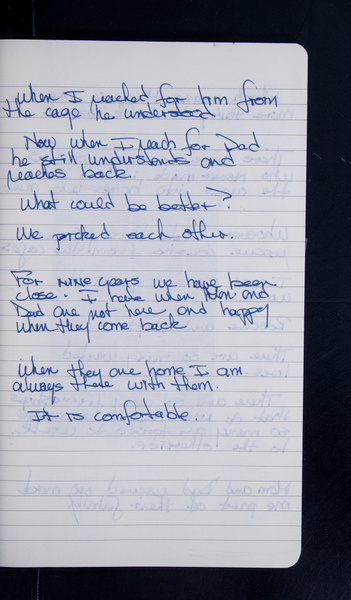 when I reached for him from
the cage he understood
Now when I reach for Dad
he still understands and
reaches back.
What could be better?
We picked each other.
For nine years we have been
close. I have when Mom and
Dad are not here and happy
when they come back
When they are home I am
always there with them.
It is comfortable.